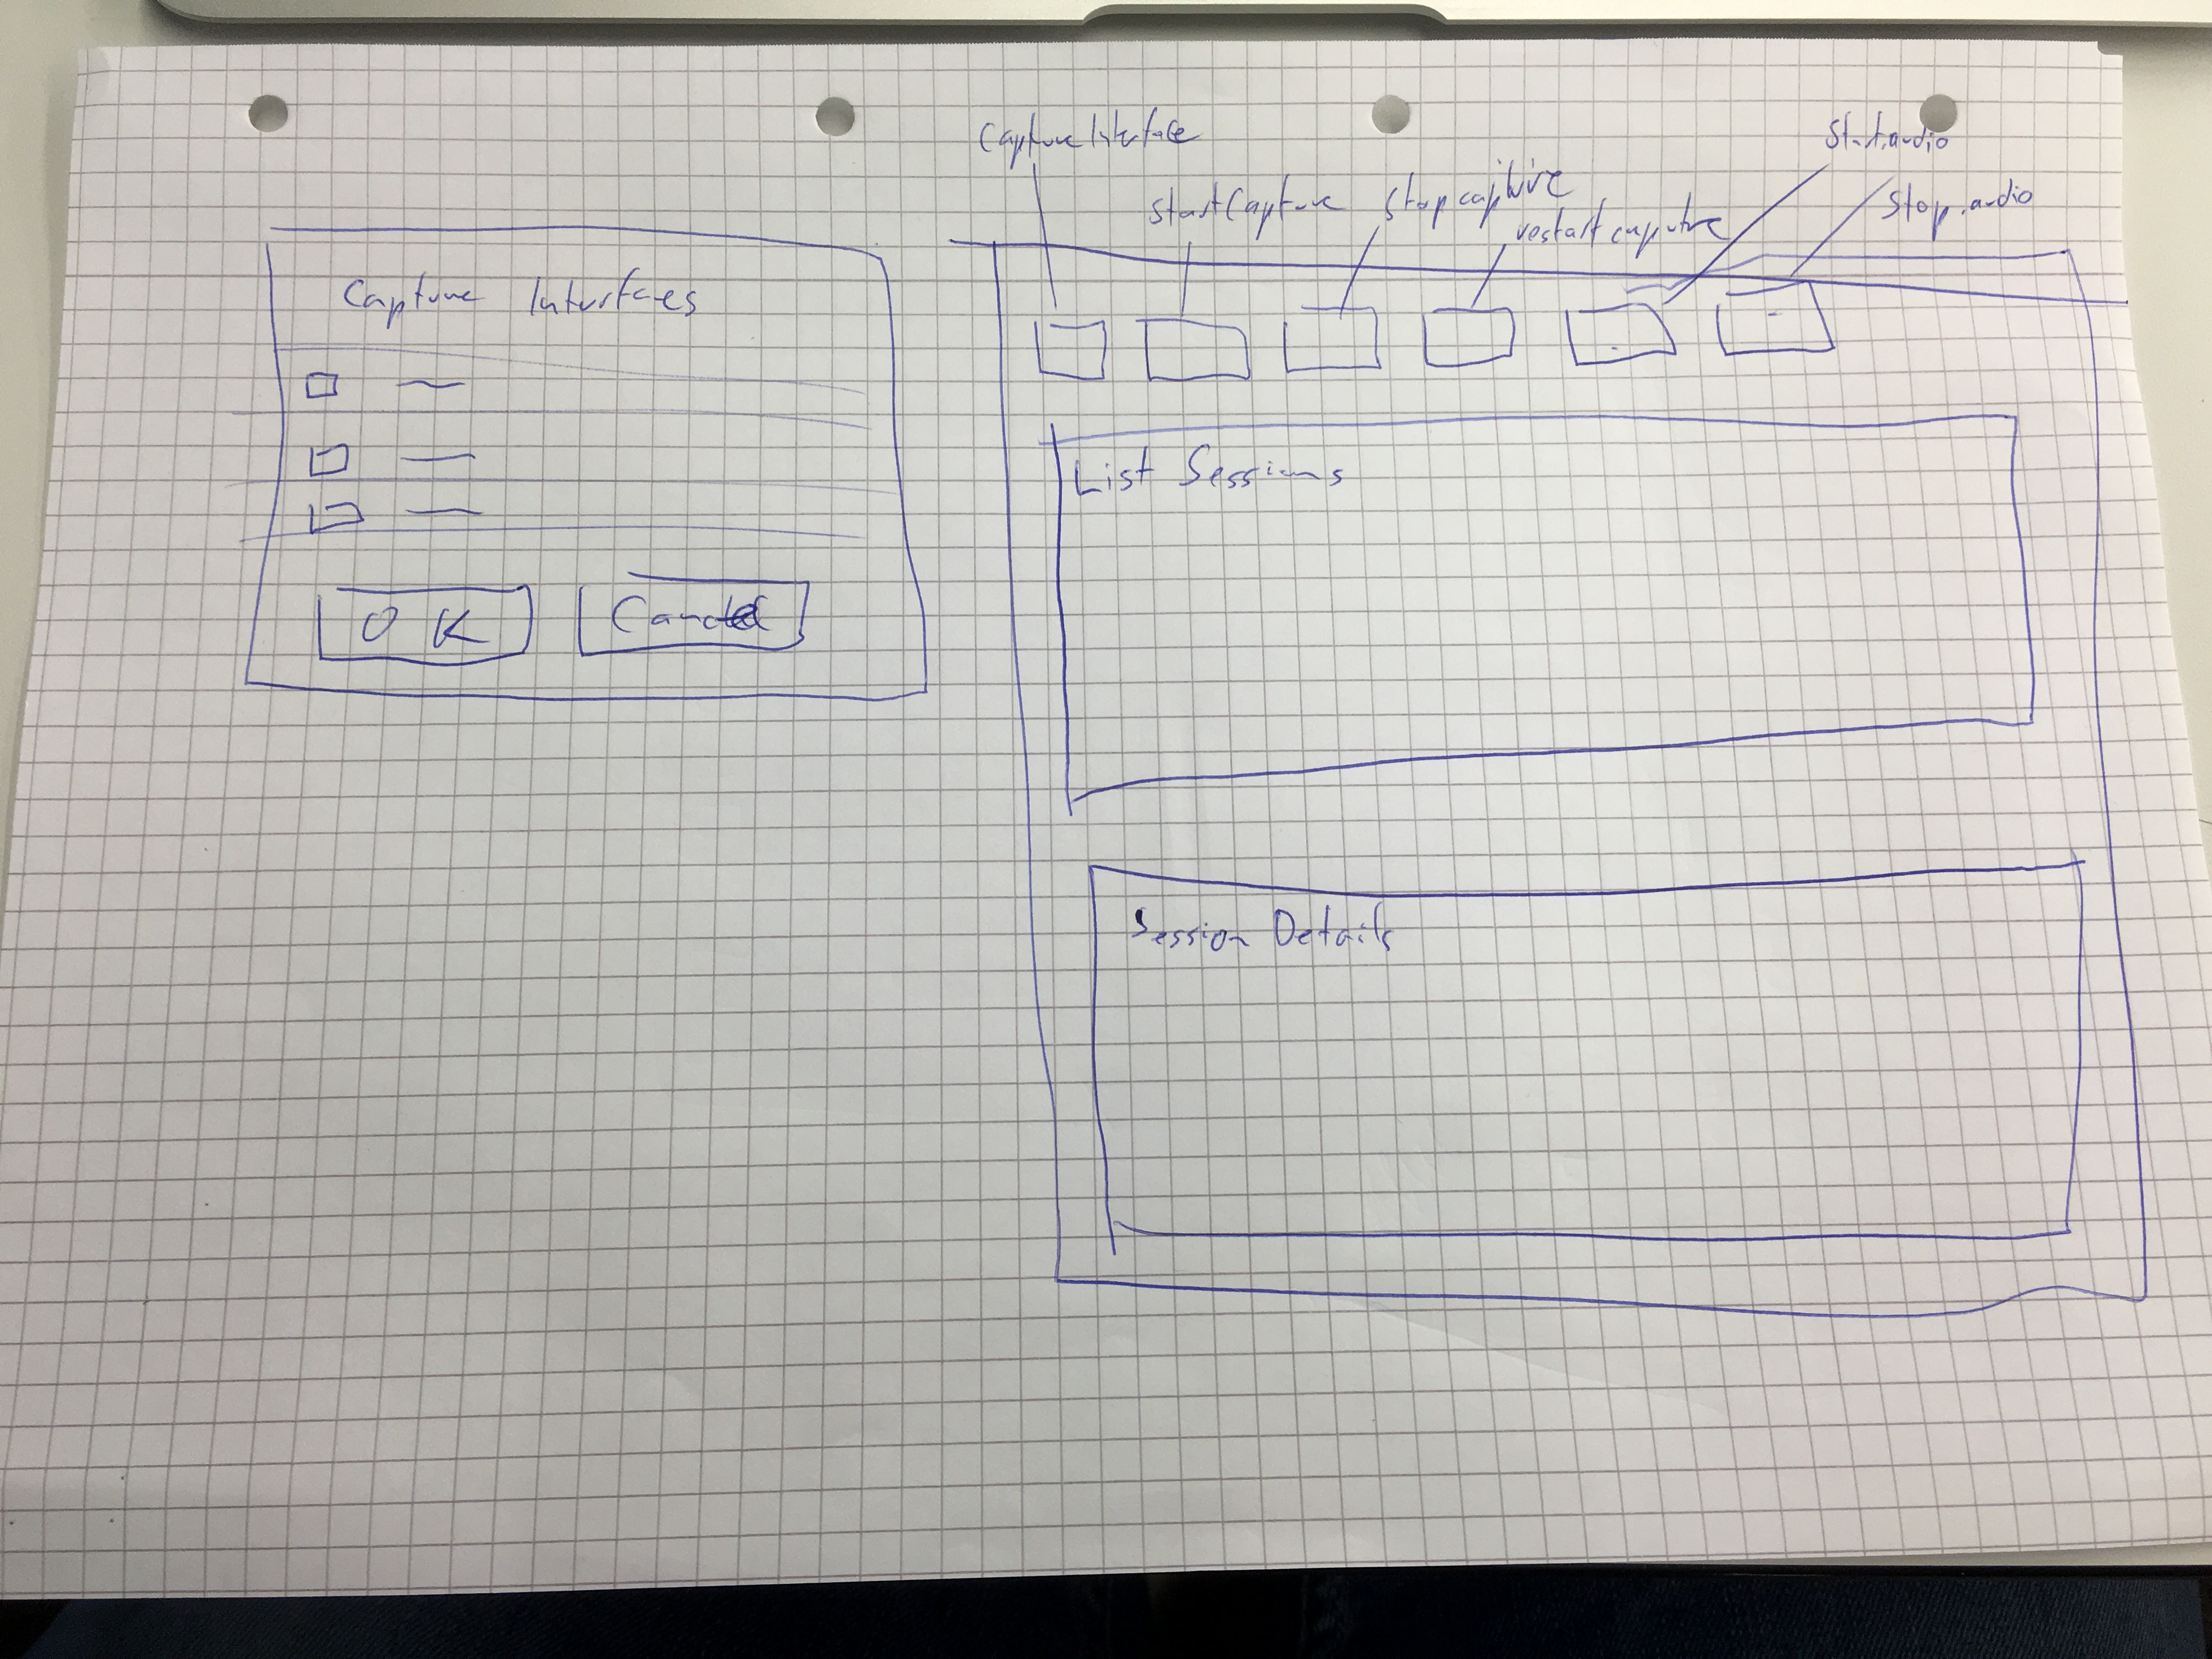 Capture Interfaces
OK
Cancel
Capture Interface
Start Capture
Stop capture
restart caputre
Start audio
Stop audio
List Sessions
Session Details